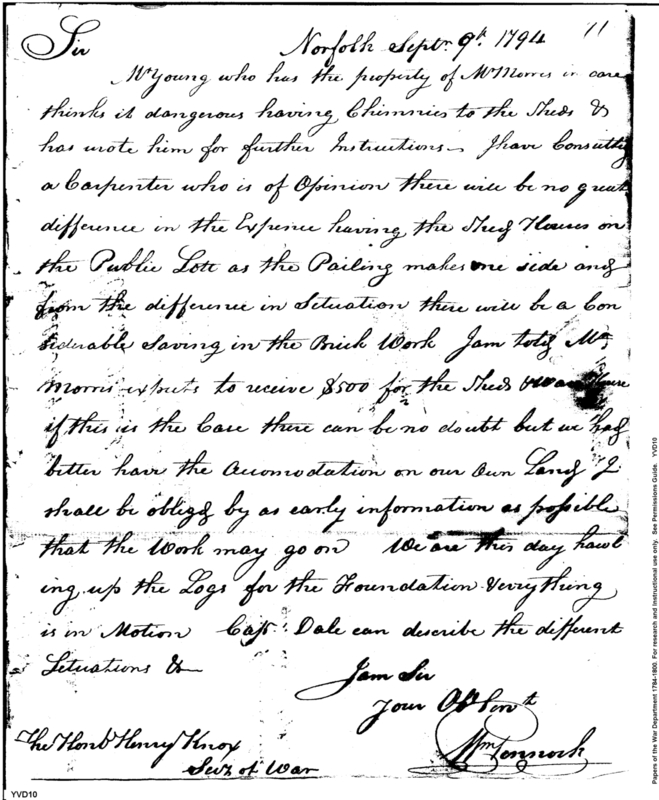 Sir Norfolk Septr. 9th. 1794 11
Mr Young who has the property of Mr Morris in care
thinks it dangerous having Chimnies to the Sheds &
has wrote him for further Instructions— I have Consulted
a Carpenter who is of Opinion there will be no great
difference in the Expence having the Shed Houses on
the Public Lott as the Pailing makes one side and
from the difference in Situation there will be a Con
siderable Saving in the Brick Work I am told Mr
Morris expects to receive $500 for the Sheds & Ware House
if this is the Case there can be no doubt but we had
better have the Accomodation on our Own Land I
shall be obliged by as early information as possible
that the Work may go on We are this day hawl
ing up the Logs for the Foundation & every thing
is in Motion Capt. Dale can describe the different
Situations &—
I am Sir
Your Ob Servt
Wm Pennock
The Honbl Henry Knox
Secy of War
YVD10
Papers of the War Department 1784-1800. For research and instructional use only. See Permissions Guide. YVD10